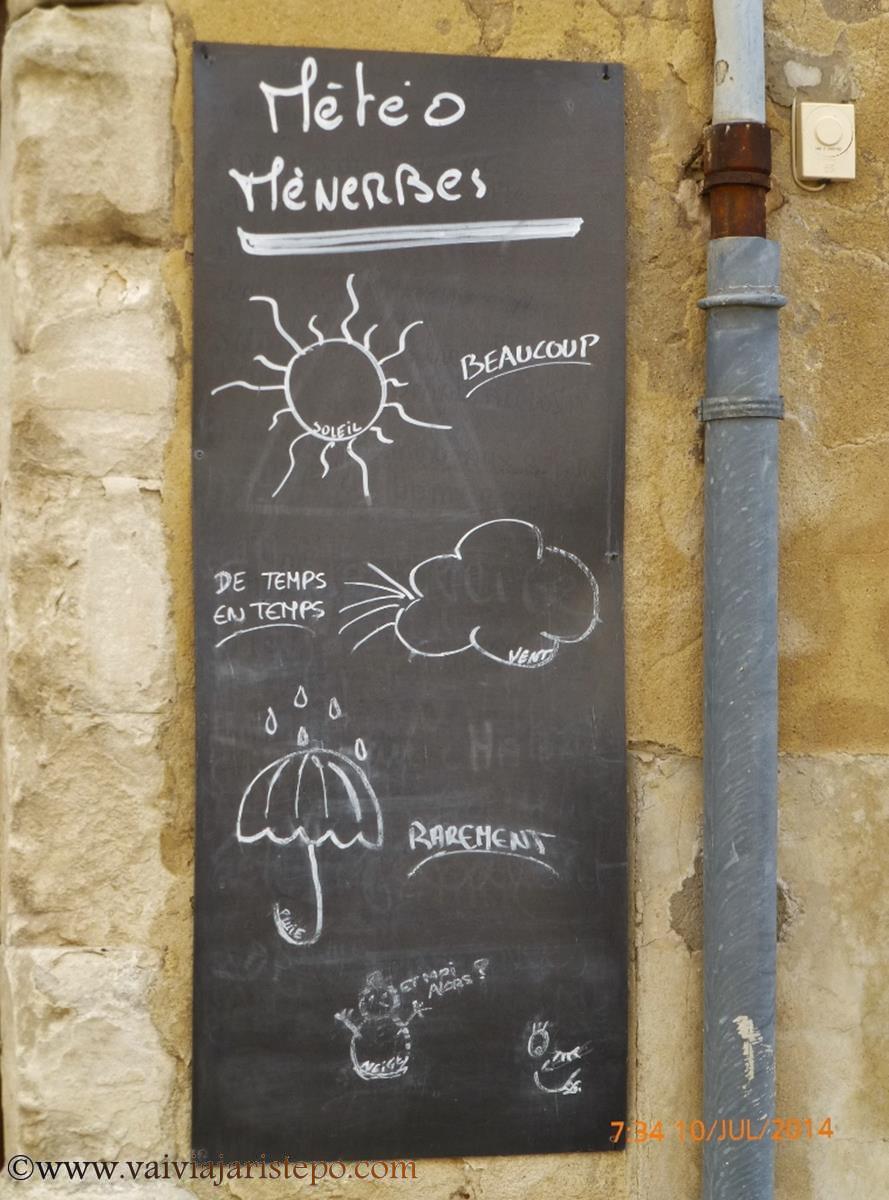 Météo
MéNERBES
SOLEIL
BEAUCOUP
DE TEMPS
EN TEMPS
VENT
RAREMENT
PLUIE
ET MOI
ALORS ?
NEIGE
SG.
7:34 10/JUL/2014
©www.vaiviajaristepo.com